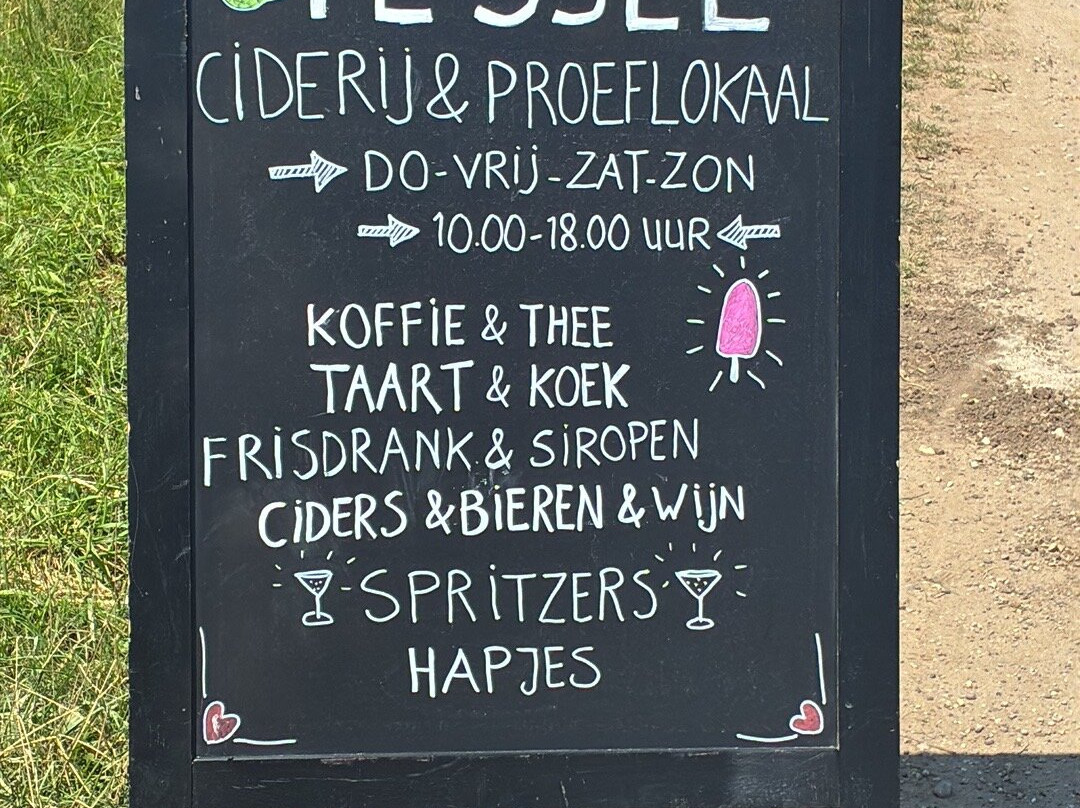 CIDERIJ & PROEFLOKAAL
DO-VRIJ-ZAT-ZON
10.00-18.00 UUR
KOFFIE & THEE
TAART & KOEK
FRISDRANK & SIROPEN
CIDERS & BIEREN & WIJN
SPRITZERS
HAPJES